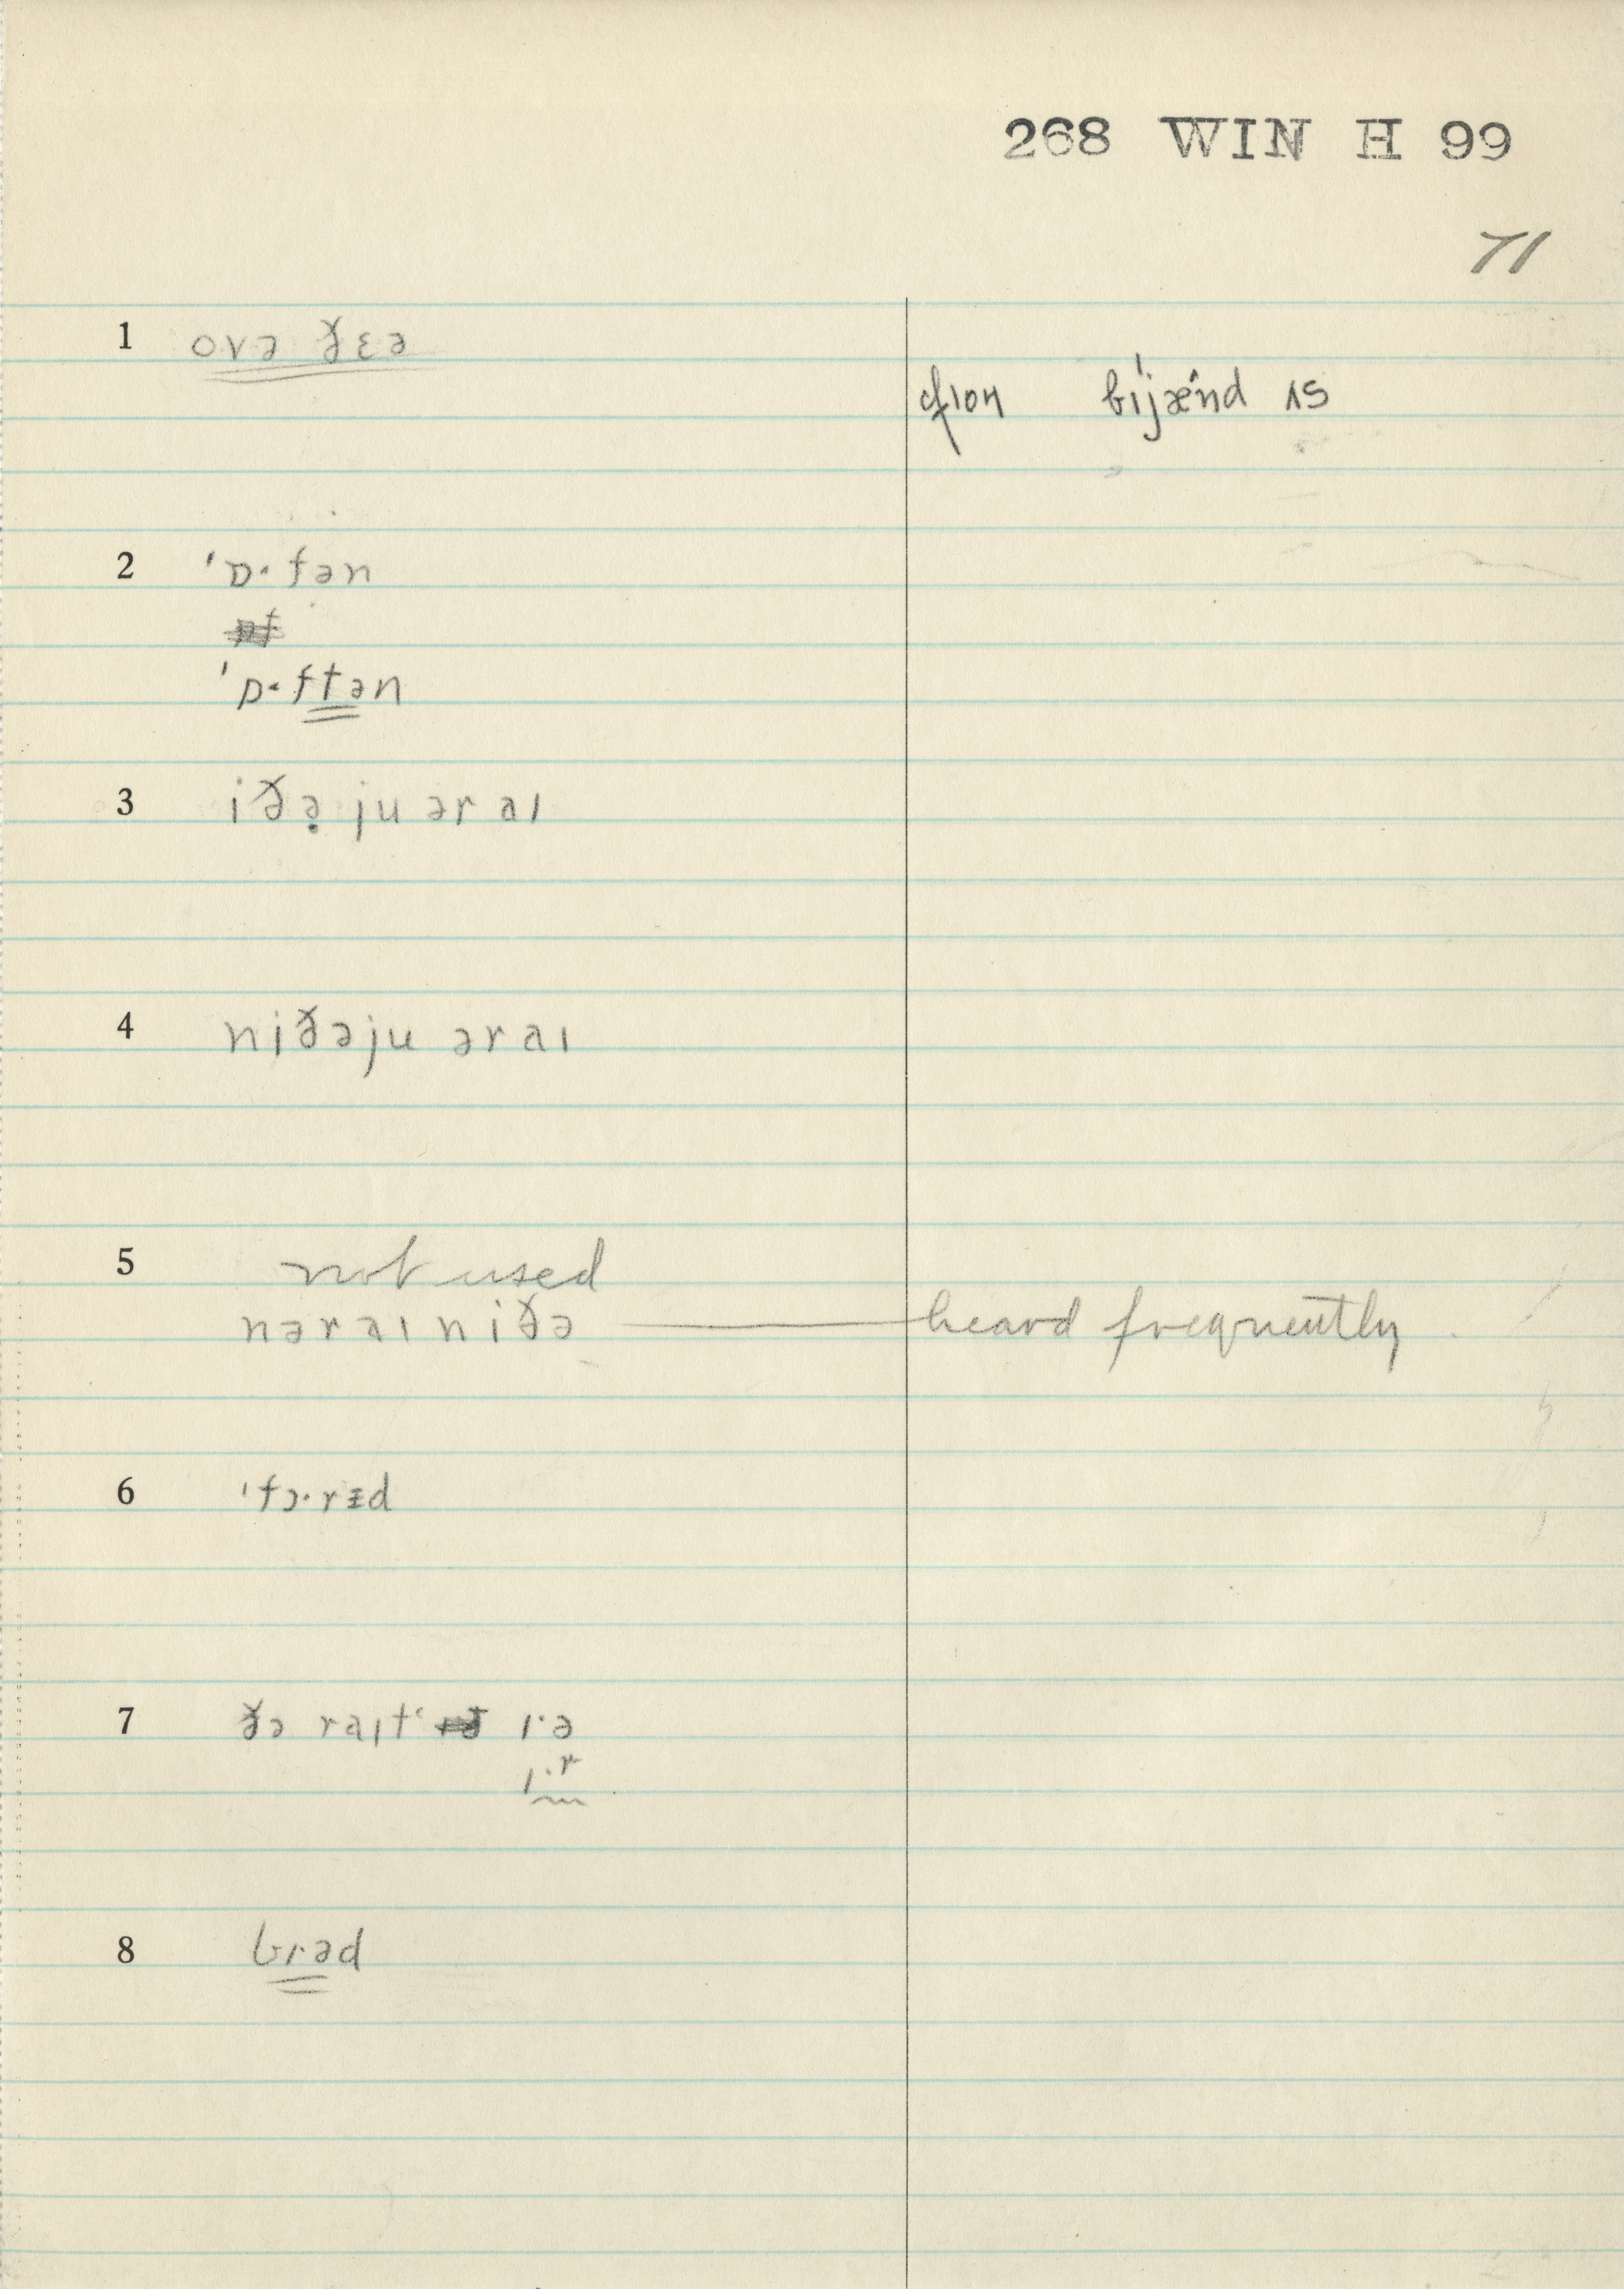 268 WIN H 99
71
1 ovə ðɛə
bɪjænd ɪs
2 ˈɒ·fən
ˈɒ·ftən
3 iðə̣ ju ər aɪ
4 niðəju ər aɪ
5 not used
nər aɪ niðə — heard frequently
6 ˈfɔ·rɪd
7 ðə raɪt ɪ·ə
ɪ·r
8 bɪəd